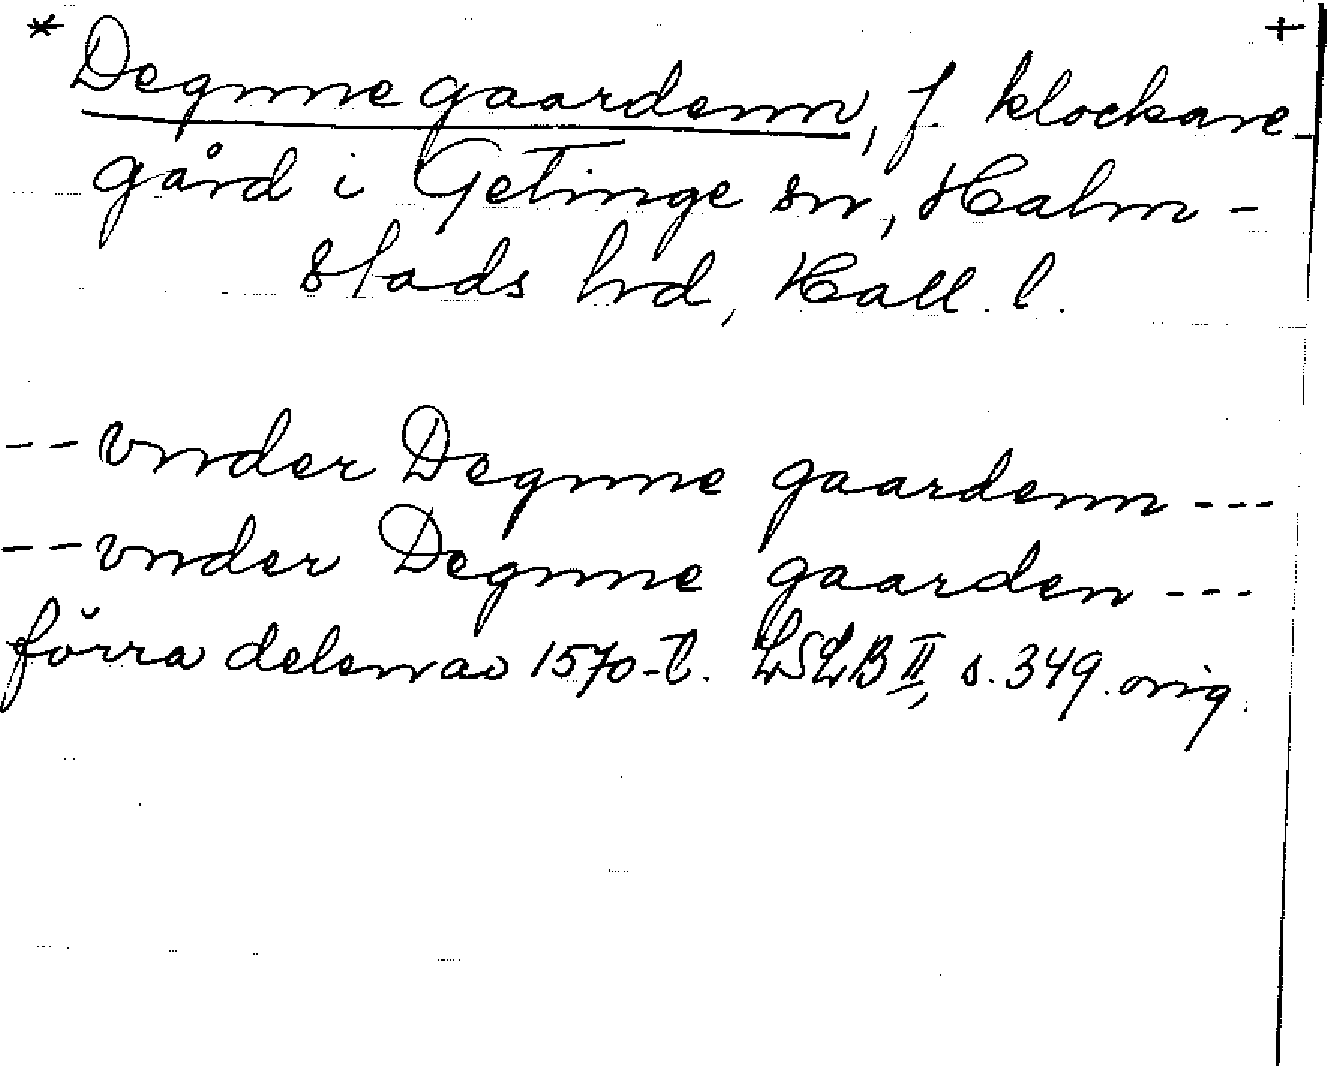 * Degnnegaardenn, f. klockare- +
gård i Getinge sn, Halm-
stads hrd, Hall. l.
-- vnder Degnne gaardenn ---
-- vnder Degnne gaarden ---
förra delen av 1570-t. LSLB II, s. 349. orig.